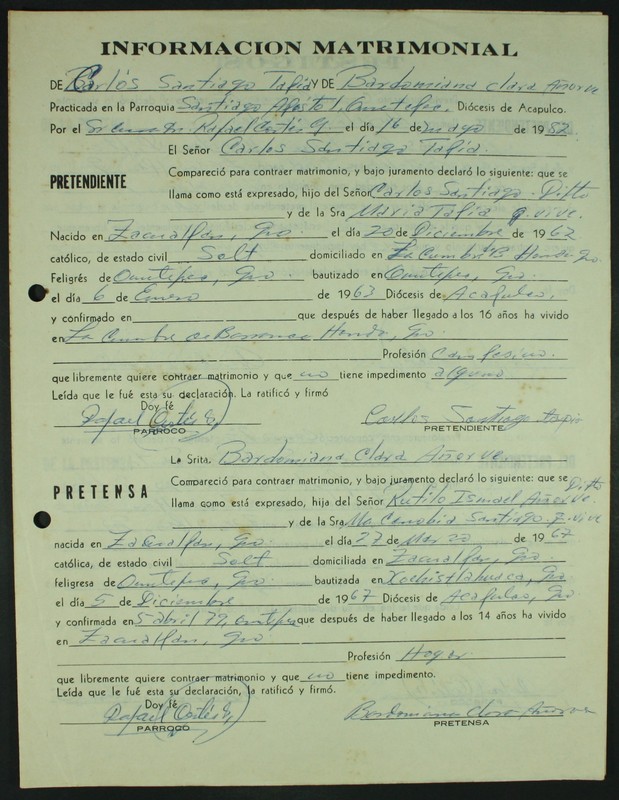 INFORMACION MATRIMONIAL
DE Carlós Santiago Tapia Y DE Bardomiana Clara Añorve
Practicada en la Parroquia Santiago Apóstol, Ometepec, Diócesis de Acapulco.
Por el Sr. Cura Dn. Rafael Cortés G. el día 16 de Mayo de 1982
El Señor Carlos Santiago Tapia.
PRETENDIENTE
Compareció para contraer matrimonio, y bajo juramento declaró lo siguiente: que se
llama como está expresado, hijo del Señor Carlos Santiago. Difto
y de la Sra Maria Tapia, q. vive.
Nacido en Zacualpan, Gro. el día 20 de Diciembre de 1962
católico, de estado civil Solt domiciliado en La Cumbre B. Honda Gro.
Feligrés de Ometepec, Gro. bautizado en Ometepec, Gro.
el día 6 de Enero de 1963 Diócesis de Acapulco,
y confirmado en que después de haber llegado a los 16 años ha vivido
en La Cumbre de Barranca Honda, Gro.
Profesión Campesino.
que libremente quiere contraer matrimonio y que no tiene impedimento alguno
Leída que le fué esta su declaración. La ratificó y firmó
Doy fé
Rafael Cortés G. Carlos Santiago Tapia
PARROCO PRETENDIENTE
La Srita. Bardomiana Clara Añorve.
PRETENSA
Compareció para contraer matrimonio, y bajo juramento declaró lo siguiente: que se
llama como está expresado, hija del Señor Rutilo Ismael Añorve. Difto
y de la Sra Ma. Cenobia Santiago q. vive
nacida en Zacualpan, Gro. el día 27 de Marzo de 1967
católica, de estado civil Solt domiciliada en Zacualpan, Gro.
feligresa de Ometepec, Gro bautizada en Xochistlahuaca, Gro
el día 5 de Diciembre de 1967 Diócesis de Acapulco, Gro
y confirmada en 5 abril 79, Ometepec que después de haber llegado a los 14 años ha vivido
en Zacualpan, Gro
Profesión Hogar
que libremente quiere contraer matrimonio y que no tiene impedimento.
Leída que le fué esta su declaración, la ratificó y firmó.
Doy fé
Rafael Cortés G. Bardomiana Clara Añorve
PARROCO PRETENSA